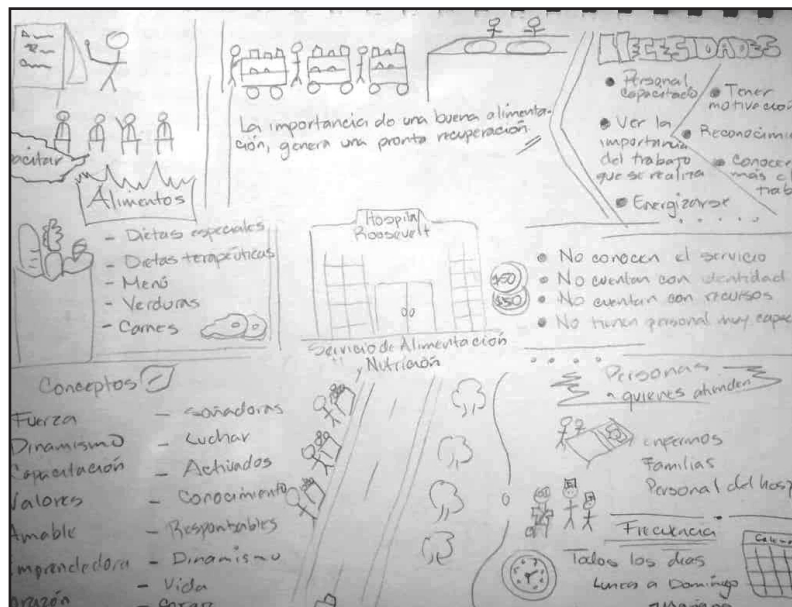 La importancia de una buena alimenta-
ción, genera una pronta recuperación
NECESIDADES
Personal
capacitado
Ver la
importancia
del trabajo
que se realiza
Energizarse
Tener
motivación
Reconocimi
Conocer
más el
trab
acitar
Alimentos
- Dietas especiales
- Dietas terapéuticas
- Menú
- Verduras
- Carnes
Hospital
Roosevelt
Servicio de Alimentación
y Nutrición
$50
$50
No conocen el servicio
No cuentan con identidad
No cuentan con recursos
No tienen personal muy capac
Conceptos
Fuerza
Dinamismo
Capacitación
Valores
Amable
mprendedora
orazón
- Soñadoras
- Luchar
- Activados
- Conocimiento
- Responsables
- Dinamismo
- Vida
Personas
a quienes atienden
enfermos
Familias
Personal del hosp
Frecuencia
Todos los días
Lunes a Domingo